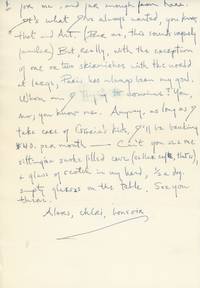 for me. and far enough from here.
It's what I've always wanted, you know,
that and Art. (Dear me, this sounds vaguely
familiar) But really, with the exception
of one or two skirmishes with the world
at large, Paris has always been my goal.
Whom am I trying to convince? You,
moi, you know me. Anyway, as long as I
take care of Gloria's kids, I'll be banking
$40. per month — Can't you see me
sitting in a smoke filled cave (cellar, that is),
a glass of scotch in my hand, 1/2 a dog.
empty glasses on the table. See you
there.
Alors, chéri, bonsoir